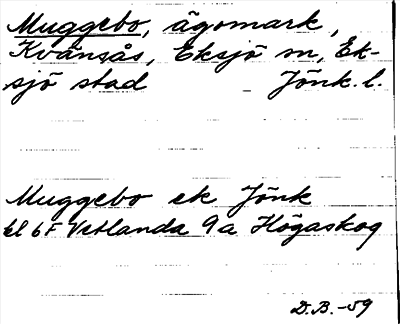 Muggebo, ägomark,
Kvänsås, Eksjö sn, Ek-
sjö stad Jönk. l.
Muggebo ek Jönk
bl 6F Vetlanda 9a Högaskog
D.B. -59